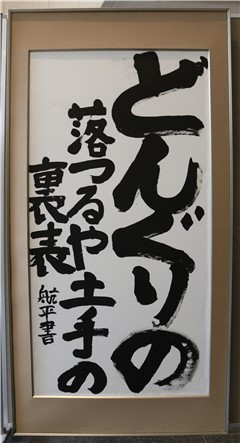 どんぐりの
落つるや土手の
裏表
航平書